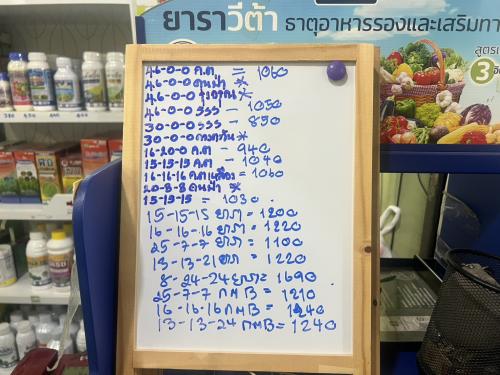 ยาราวีต้า
ธาตุอาหารรองและเสริมทา
สูตรเ
3
46-0-0 ค.ต = 1060
46-0-0 คนฟ้า *
46-0-0 *
46-0-0 รรร - 1050
30-0-0 รรร - 850
30-0-0 *
16-20-0 ค.ต - 940
15-15-15 ค.ต - 1040
16-16-16 ค.ต = 1060
20-8-8 คนฟ้า *
15-15-15 = 1030
15-15-15 ยารา = 1200
16-16-16 ยารา = 1220
25-7-7 ยารา = 1100
13-13-21 ยารา = 1220
8-24-24 ยารา = 1690
25-7-7 กมB = 1210
16-16-16 กมB = 1240
13-13-24 กมB = 1240